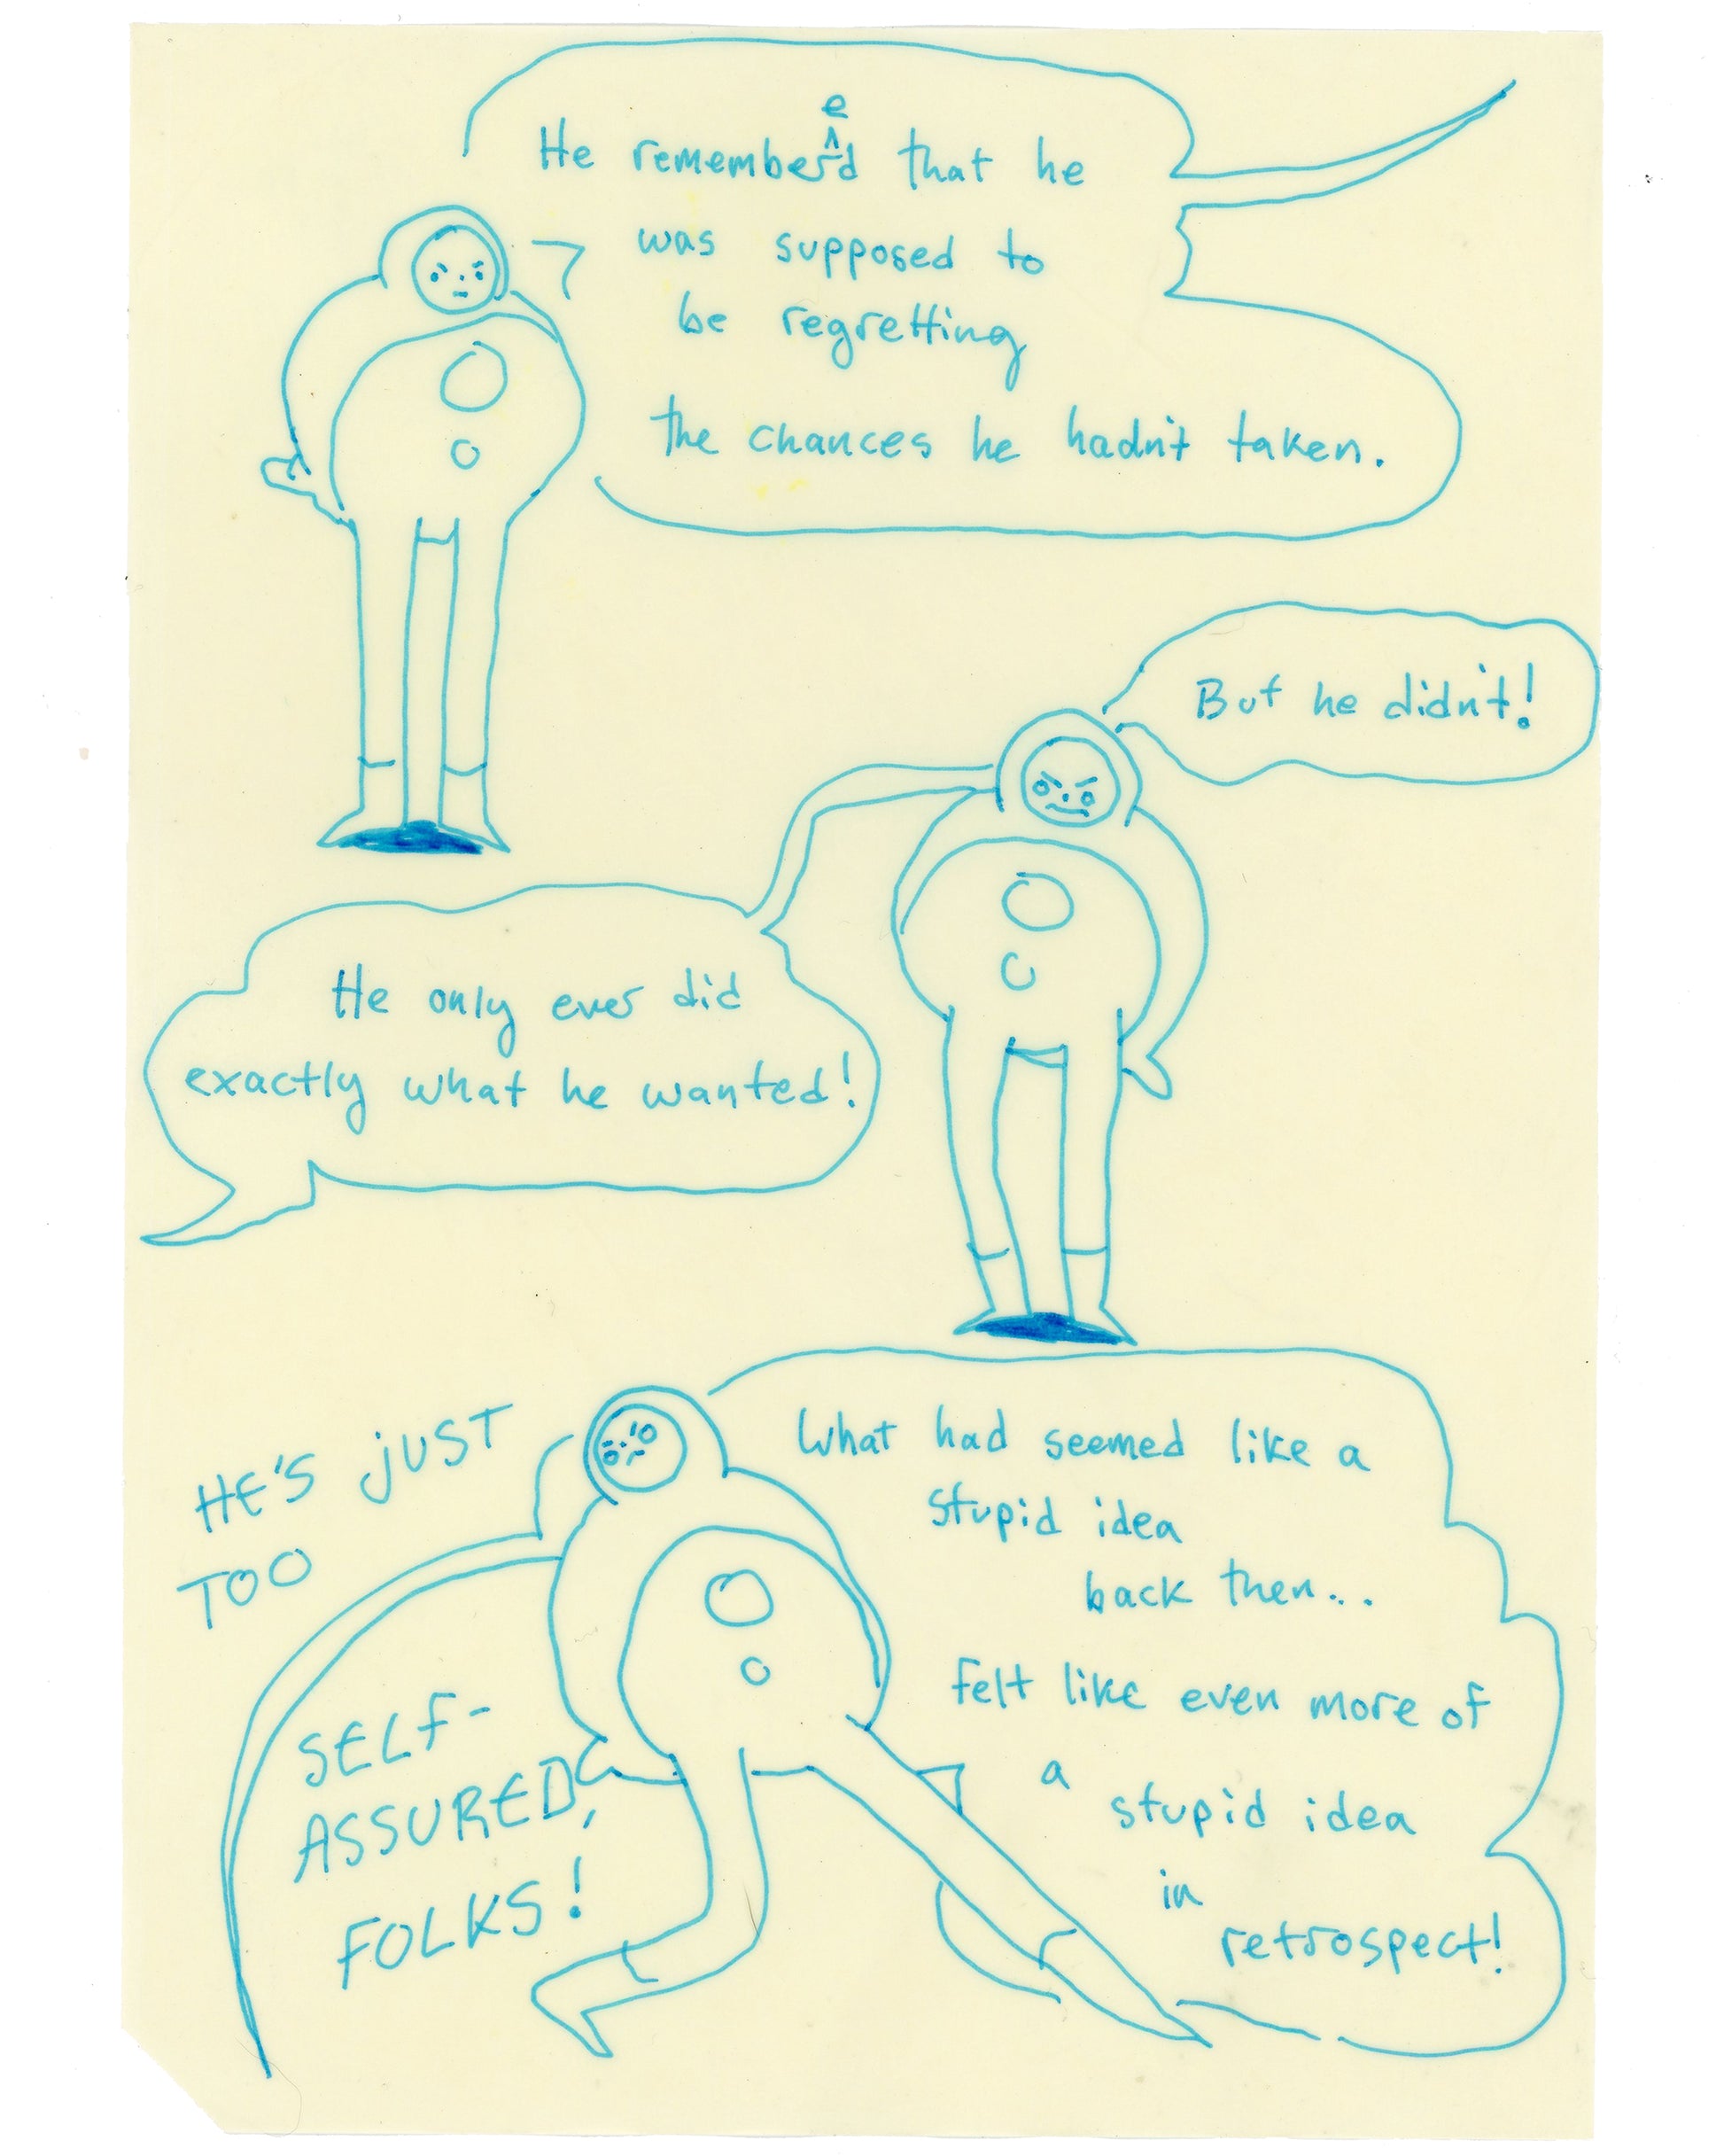 He remembered that he
was supposed to
be regretting
the chances he hadn't taken.
But he didn't!
He only ever did
exactly what he wanted!
HE'S jUST
TOO
SELF-
ASSURED,
FOLKS!
What had seemed like a
stupid idea
back then...
felt like even more of
a
stupid idea
in
retrospect!